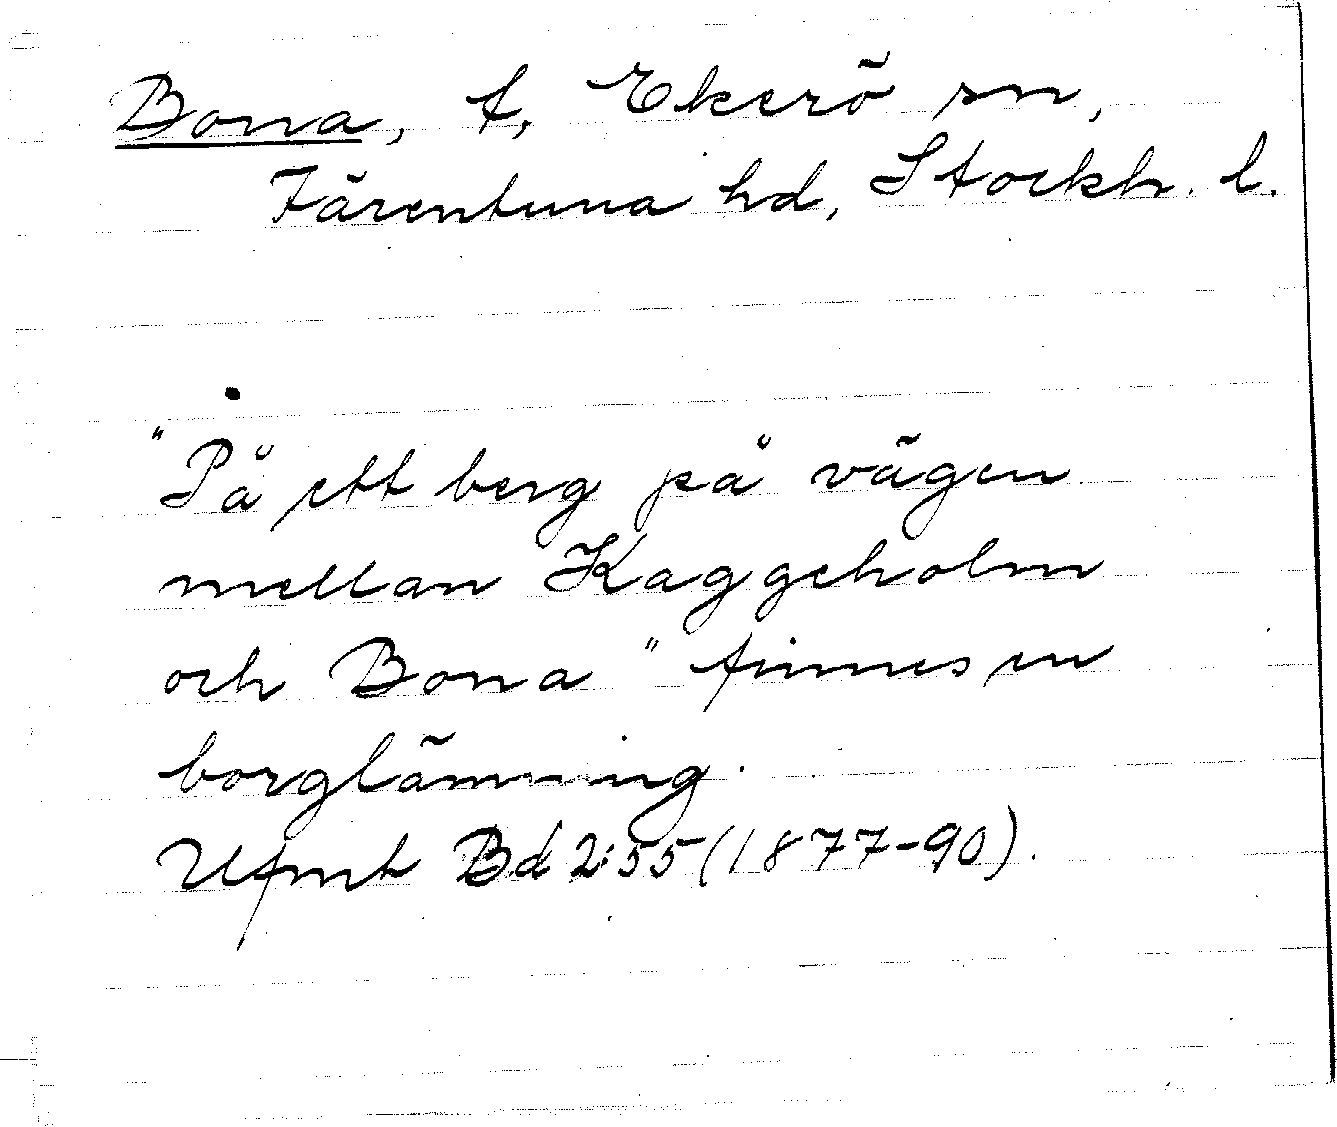 Bona, t, Ekerö sn,
Färentuna hd, Stockh. l.
"På ett berg på vägen
mellan Kaggeholm
och Bona" finnes en
borglämning.
Ufmt Bd 2:55 (1877-90).